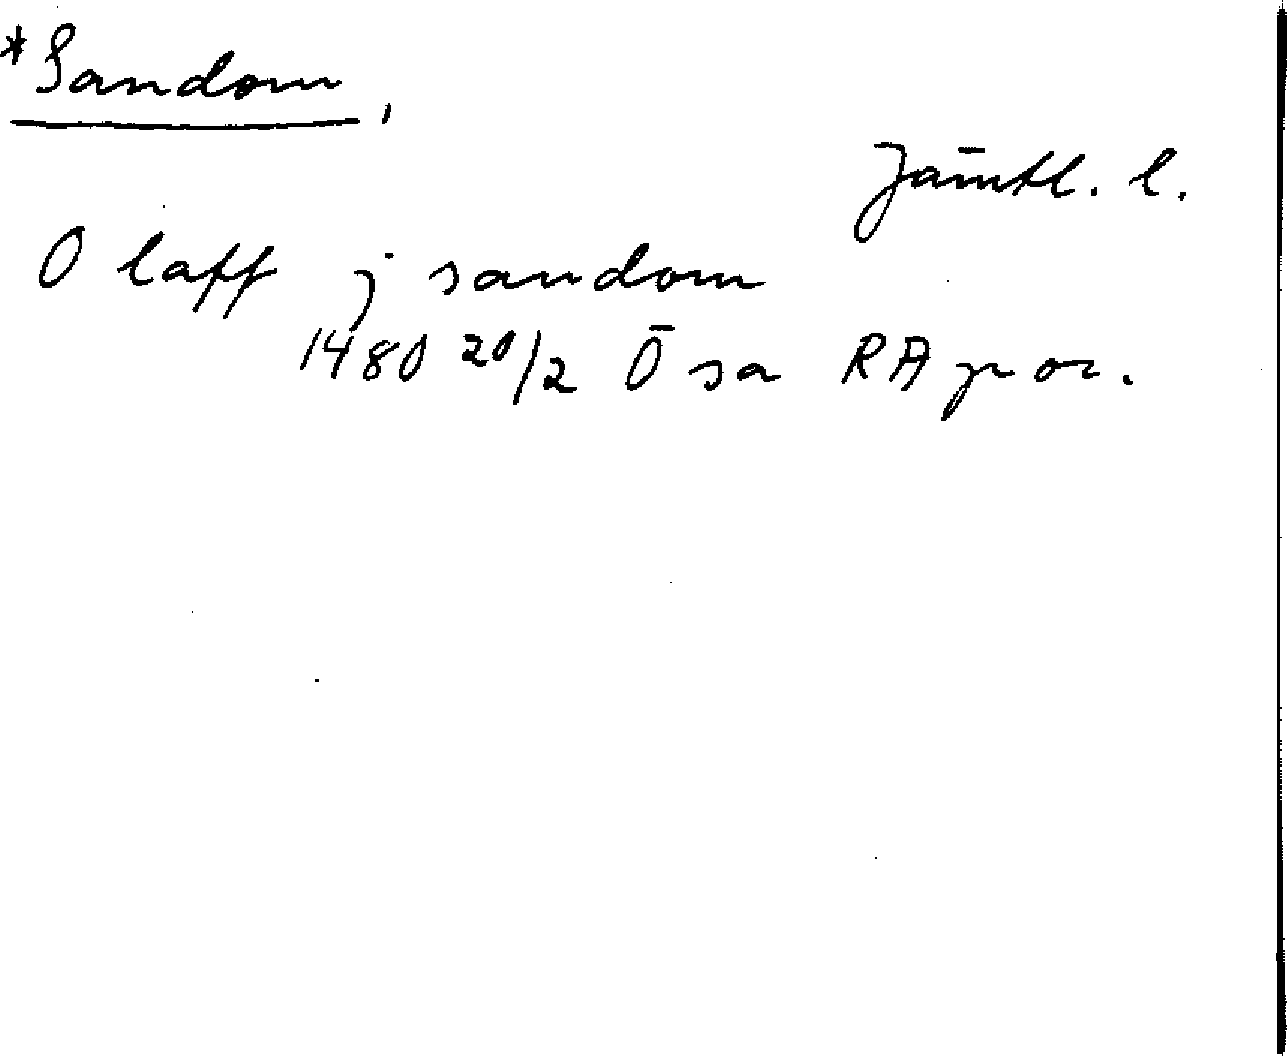 *Sandom,
Jämtl. l.
Olaff j sandom
1480 20/2 Ösa RA por.